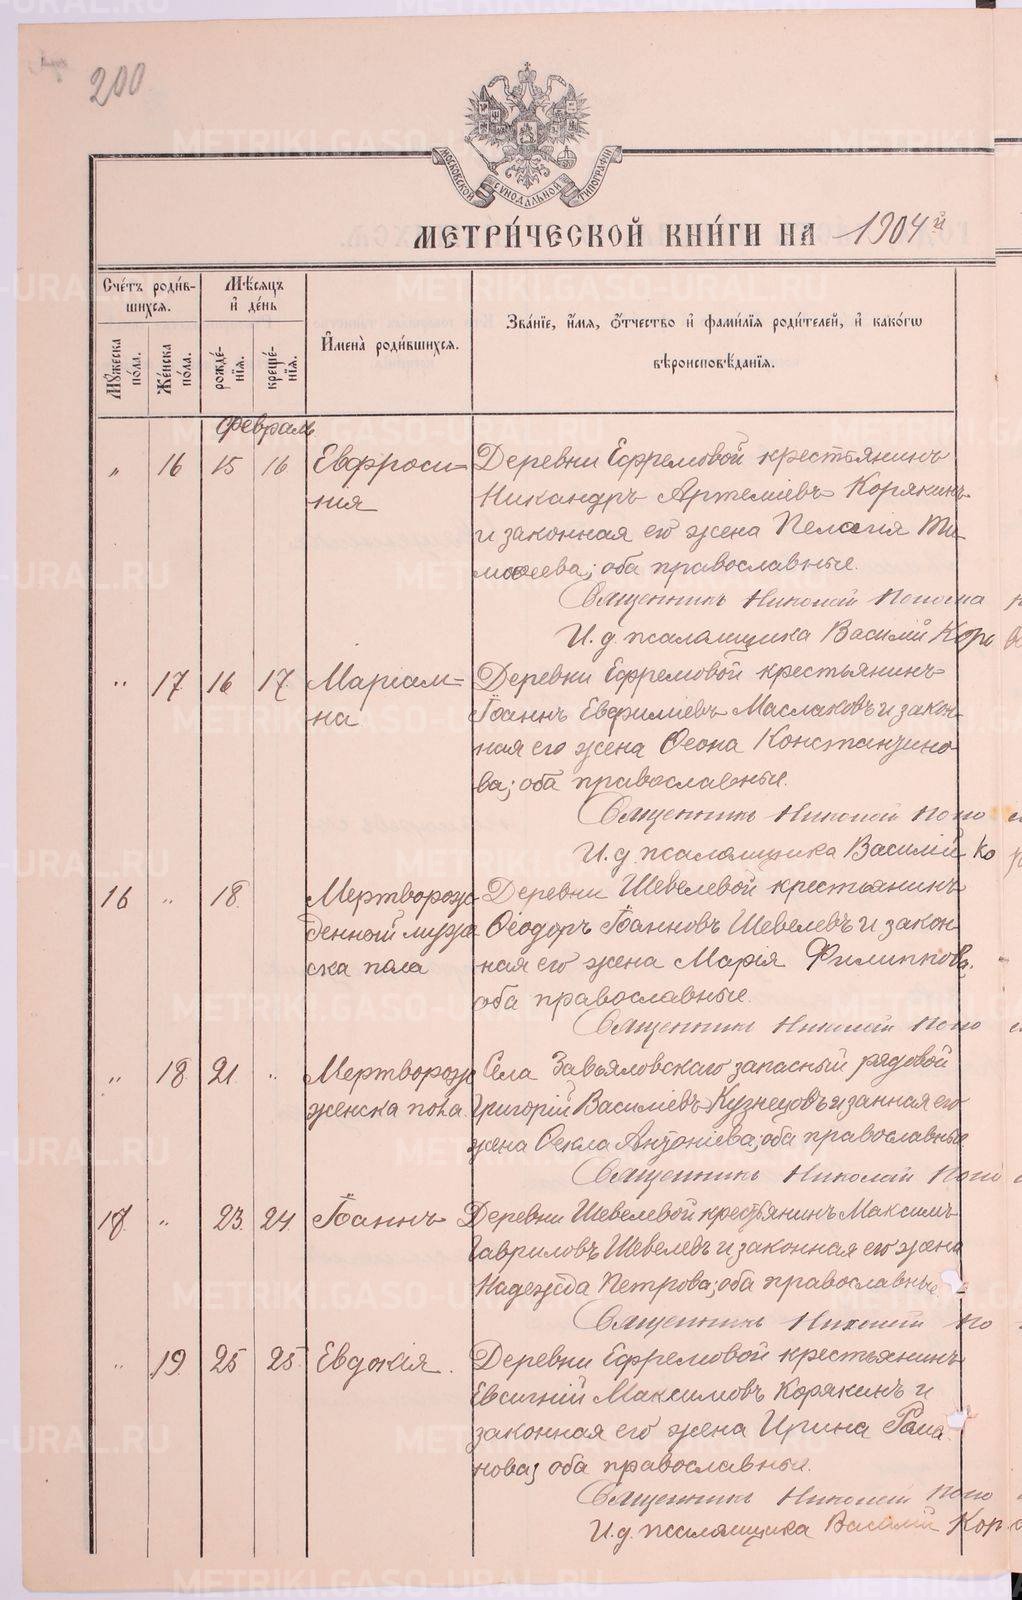 200
МОСКОВСКОЙ СѴНОДАЛЬНОЙ ТИПОГРАФІИ
МЕТРИ́ЧЕСКОЙ КНИ́ГИ НА 1904 й
Сче́тъ роди́в-
шихся.
Мѣ́сяцъ
и҆ де́нь
И҆мена̀ роди́вшихся.
Зва́нїе, и҆́мя, ѻ҆́тчество и҆ фами́лїя роди́телей, и҆ како́гѡ
вѣроисповѣ́данїя.
Мꙋ́жеска по́ла.
Же́нска по́ла.
рожде́-нїя.
креще́-нїя.
Февраль
„ 16 15 16 Евфроси- Деревни Ефремовой крестьянинъ
ния Никандръ Артеміевъ Корякинъ
и законная его жена Пелагія Ти-
моѳеева; оба православные.
Священникъ Николай
И. д. псаломщика Василій
„ 17 16 17 Маріам- Деревни Ефремовой крестьянинъ
на Іоаннъ Евфиміевъ Маслаковъ и закон-
ная его жена Ѳеона Константино-
ва; оба православные.
Священникъ Николай
И. д. псаломщика Василій
16 „ 18 Мертворож- Деревни Шевелевой крестьянинъ
денный муже Ѳеодоръ Іоанновъ Шевелевъ и закон-
ска пола ная его жена Марія Филиппова,
оба православные.
Священникъ Николай
„ 18 21 „ Мертворож Села Завьяловскаго запасный рядовой
женска пола Григорій Василіевъ Кузнецовъ и занная его
жена Ѳекла Антоніева; оба православные
Священникъ Николай
17 „ 23 24 Іоаннъ Деревни Шевелевой крестьянинъ Максимъ
Гавриловъ Шевелевъ и законная его жена
Надежда Петрова; оба православные
Священникъ Николай
„ 19 25 25 Евдокія. Деревни Ефремовой крестьянинъ
Евсигній Максимовъ Корякинъ и
законная его жена Ирина Рома-
нова; оба православные.
Священникъ Николай
И. д. псаломщика Василій
METRIKI.GASO-URAL.RU